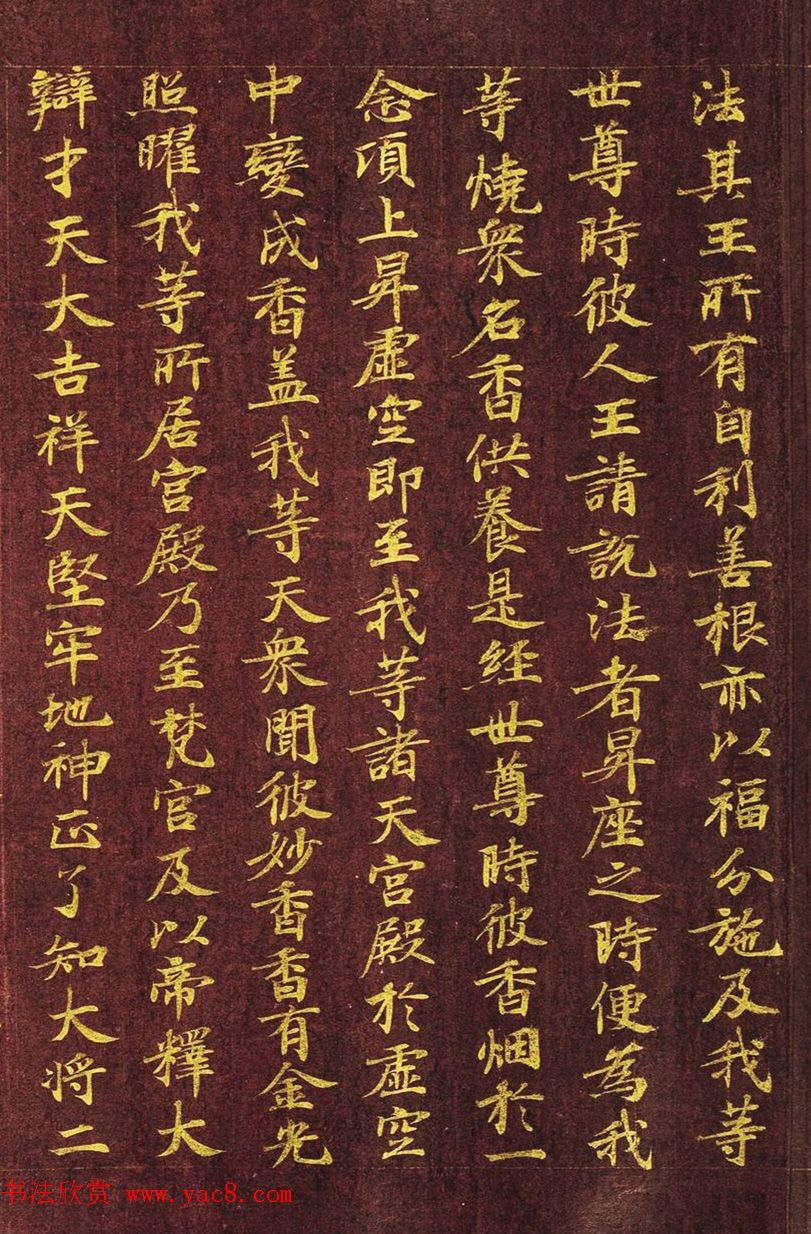 法其王所有自利善根亦以福分施及我等
世尊時彼人王請說法者昇座之時便為我
等燒眾名香供養是經世尊時彼香烟於一
念項上昇虛空即至我等諸天宮殿於虛空
中變成香盖我等天眾聞彼妙香香有金光
照曜我等所居宮殿乃至梵宮及以帝釋大
辯才天大吉祥天堅牢地神正了知大将二
书法欣赏 www.yac8.com